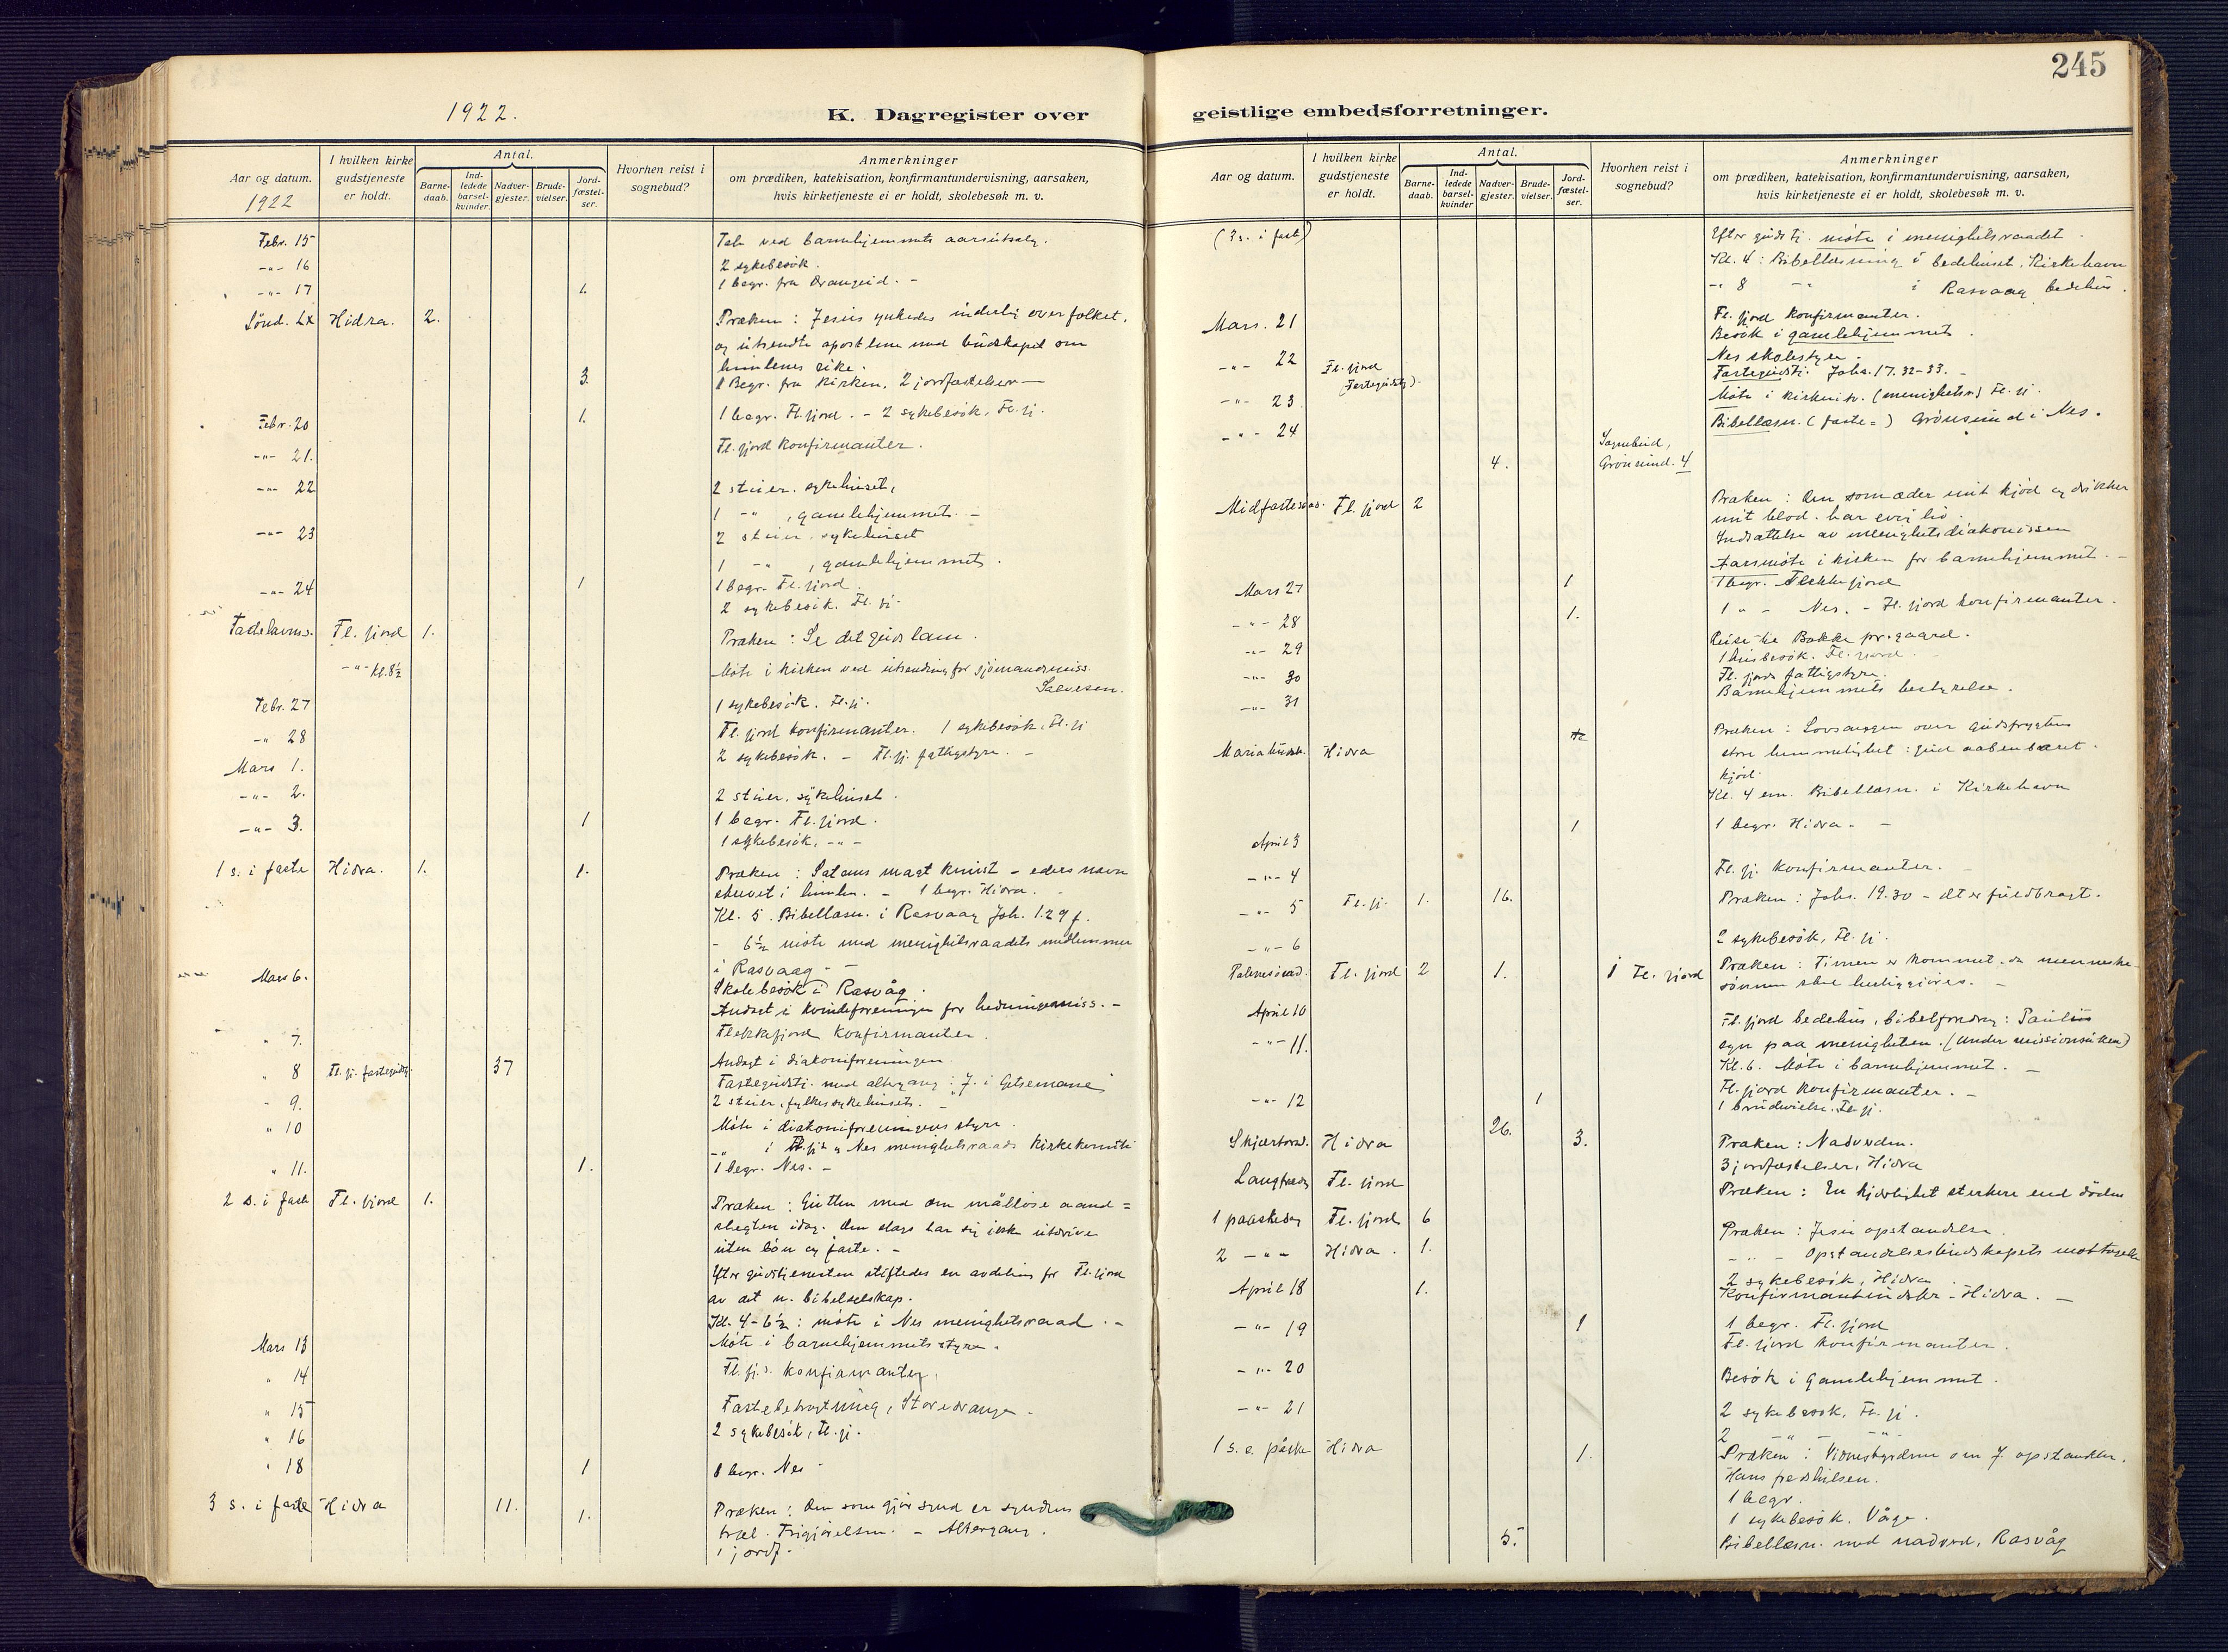 245
1922.
K. Dagregister over
geistlige embedsforretninger.
Aar og datum.
1922
I hvilken kirke
gudstjeneste
er holdt.
Antal.
Barne-
daab.
Ind-
ledede
barsel-
kvinder.
Nadver-
gjester.
Brude-
vielser.
Jord-
fæstel-
ser.
Hvorhen reist i
sognebud?
Anmerkninger
om prædiken, katekisation, konfirmantundervisning, aarsaken,
hvis kirketjeneste ei er holdt, skolebesøk m. v.
Febr. 15 Tale ved barnehjemmets aarsutsalg.
-"- 16 2 sykebesök.
-"- 17 1. 1 begr. fra Drangeid. -
Sönd. Hidra. 2. Præken: Jesus ynkedes inderlig over folket,
og utsendte apostlene med budskapet om
himlenes rike.
3. 1 Begr. fra kirken, 2 jordfæstelser
Febr. 20 1. 1 begr. Fl.fjord. - 2 sykebesök, Fl.fj.
-"- 21. Fl.fjord konfirmanter.
-"- 22 2 stuer, sykehuset,
1 -"- , gamlehjemmet. -
-"- 23 2 stuer, sykehuset
1 -"- , gamlehjemmet.
-"- 24 1 1 begr. Fl.fjord.
2 sykebesök. Fl.fj.
Fastelavns. Fl.fjord 1. Præken: Se det guds lam.
-"- kl. 8½ Möte i kirken ved utsending for sjömandsmiss.
Salvesen.
Febr. 27 1 sykebesök. Fl.fj.
-"- 28 Fl.fjord konfirmanter. 1 sykebesök, Fl.fj
Mars 1. 2 sykebesök. - Fl.fj. fattigstyre. -
-"- 2. 2 stuer, sykehuset.
-"- 3. 1 1 begr. Fl.fjord.
1 sykebesök, -"-
1 s. i faste Hidra. 1. 1. Præken: Satans magt knust - eders navn
skrevet i himlen. - 1 begr. Hidra.
Kl. 5. Bibellæsn. i Rasvaag Joh. 1.29 f.
- 6½ möte med menighetsraadets medlemmer
i Rasvaag. -
Mars 6. Skolebesök i Rasvåg.
Andagt i kvindeforeningen for hedningemiss. -
" 7. Flekkefjord konfirmanter.
" 8 Fl.fj. fastegudstj. 37 Andagt i diakoniforeningen.
Fastegudstj. med altergang: J. i Getsemane
" 9. 2 stuer, fylkessykehuset.
" 10 Möte i diakoniforeningens styre.
-"- i Fl.fj. og Nes menighetsraads kirkekomite
" 11. 1. 1 begr. Nes. -
2 s. i faste Fl.fjord 1. Præken: Gutten med den målløse aand =
slegten idag. Den slags lar sig ikke utdrive
uten bön og faste. -
Efter gudstjenesten stiftedes en avdeling for Fl.fjord
av det n. bibelselskap.
Kl. 4-6½: möte i Nes menighetsraad. -
Mars 13 Möte i barnehjemmets styre.
" 14 Fl.fj.s konfirmanter,
" 15 Fastebetragtning, Storedrange.
" 16 2 sykebesök, Fl.fj.
" 18 1 1 begr. Nes
3 s. i faste Hidra 11. 1. Præken: Den som gjör synd er syndens
træl. Frigjörelsen. - Altergang.
1 jordf.
Aar og datum.
I hvilken kirke
gudstjeneste
er holdt.
Antal.
Barne-
daab.
Ind-
ledede
barsel-
kvinder
Nadver-
gjester.
Brude-
vielser.
Jord-
fæstel-
ser.
Hvorhen reist i
sognebud?
Anmerkninger
om prædiken, katekisation, konfirmantundervisning, aarsaken,
hvis kirketjeneste ei er holdt, skolebesøk m. v.
(3 s. i fast) Efter gudstj. möte i menighetsraadet.
Kl. 4: Bibellæsning i bedehuset, Kirkehavn
-" 8 -"- i Rasvaag bedehus.
Mars. 21 Fl.fjord konfirmanter.
Besök i gamlehjemmet.
-"- 22 Fl.fjord Fastegudstj). Nes skolestyre.
Fastegudstj. Johs. 17. 32-33. -
-"- 23 Möte i kirkeutv. (menighetsr) Fl.fj.
-"- 24 Bibellæsn. (faste=) Grönsund i Nes.
4. Sognebud,
Grönsund. 4
Midfastesönd. Fl.fjord 2 Præken: Den som æder mit kjöd og drikker
mit blod, har evig liv.
Indsættelse av menighetsdiakonissen
Aarsmöte i kirken for barnehjemmet. -
Mars 27 1 1 begr. Flekkefjord
-"- 28 1. 1 " - Nes. - Fl.fjord konfirmanter.
-"- 29 Reise til Bakke pr.gaard.
1 husbesök. Fl.fjord.
-"- 30 Fl.fjords fattigstyre.
-"- 31 Barnehjemmets bestyrelse.
Maria Hidra Præken: Lovsangen over gudsfrygtens
store hemmelighet: gud aabenbaret.
kjöd.
Kl. 4 em. Bibellæsn. i Kirkehavn
April 3 1 1 begr. Hidra. -
-"- 4 Fl.fj. konfirmanter.
-"- 5 Fl.fj. 1. 16. Præken: Johs. 19.30 - det er fuldbragt.
-"- 6 2 sykebesök, Fl.fj.
Palmesönd. Fl.fjord 2 1. 1 Fl.fjord Præken: Timen er kommet, da menneske-
sönnen skal herliggjöres. -
April 10 Fl.fjord bedehus, bibelforedrag: Pauli
syn paa menigheten. (Under missionsuken)
-"- 11. Kl. 6. Möte i barnehjemmet. -
Fl.fjord konfirmanter. -
-"- 12 1 1 brudvielse. Fl.fj.
Skjærtorsd. Hidra 26. 3. Præken: Nadverden.
3 jordfæstelser, Hidra
Langfredag Fl.fjord Præken: En kjærlighet sterkere end döden
1 paaskedag Fl.fjord 6 Præken: Jesu opstandelse.
2 -"- Hidra. 1. -"- Opstandelsesbudskapets mottagelse
April 18 1. 2 sykebesök, Hidra
Konfirmantindskr. - Hidra. -
-"- 19 1 1 begr. Fl.fjord
Fl.fjord konfirmanter.
-"- 20 Besök i gamlehjemmet.
-"- 21 2 sykebesök, Fl.fj.
2 -"- -"-
1 s. e. påske Hidra 1. Præken: Vidnesbyrdene om J. opstandelse.
Hans fredhilsen.
1 begr.
1 sykebesök. Våge.
5. Bibellæsn. med nadverd, Rasvåg